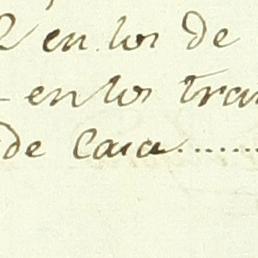 en los de
en los tra
de Caia........